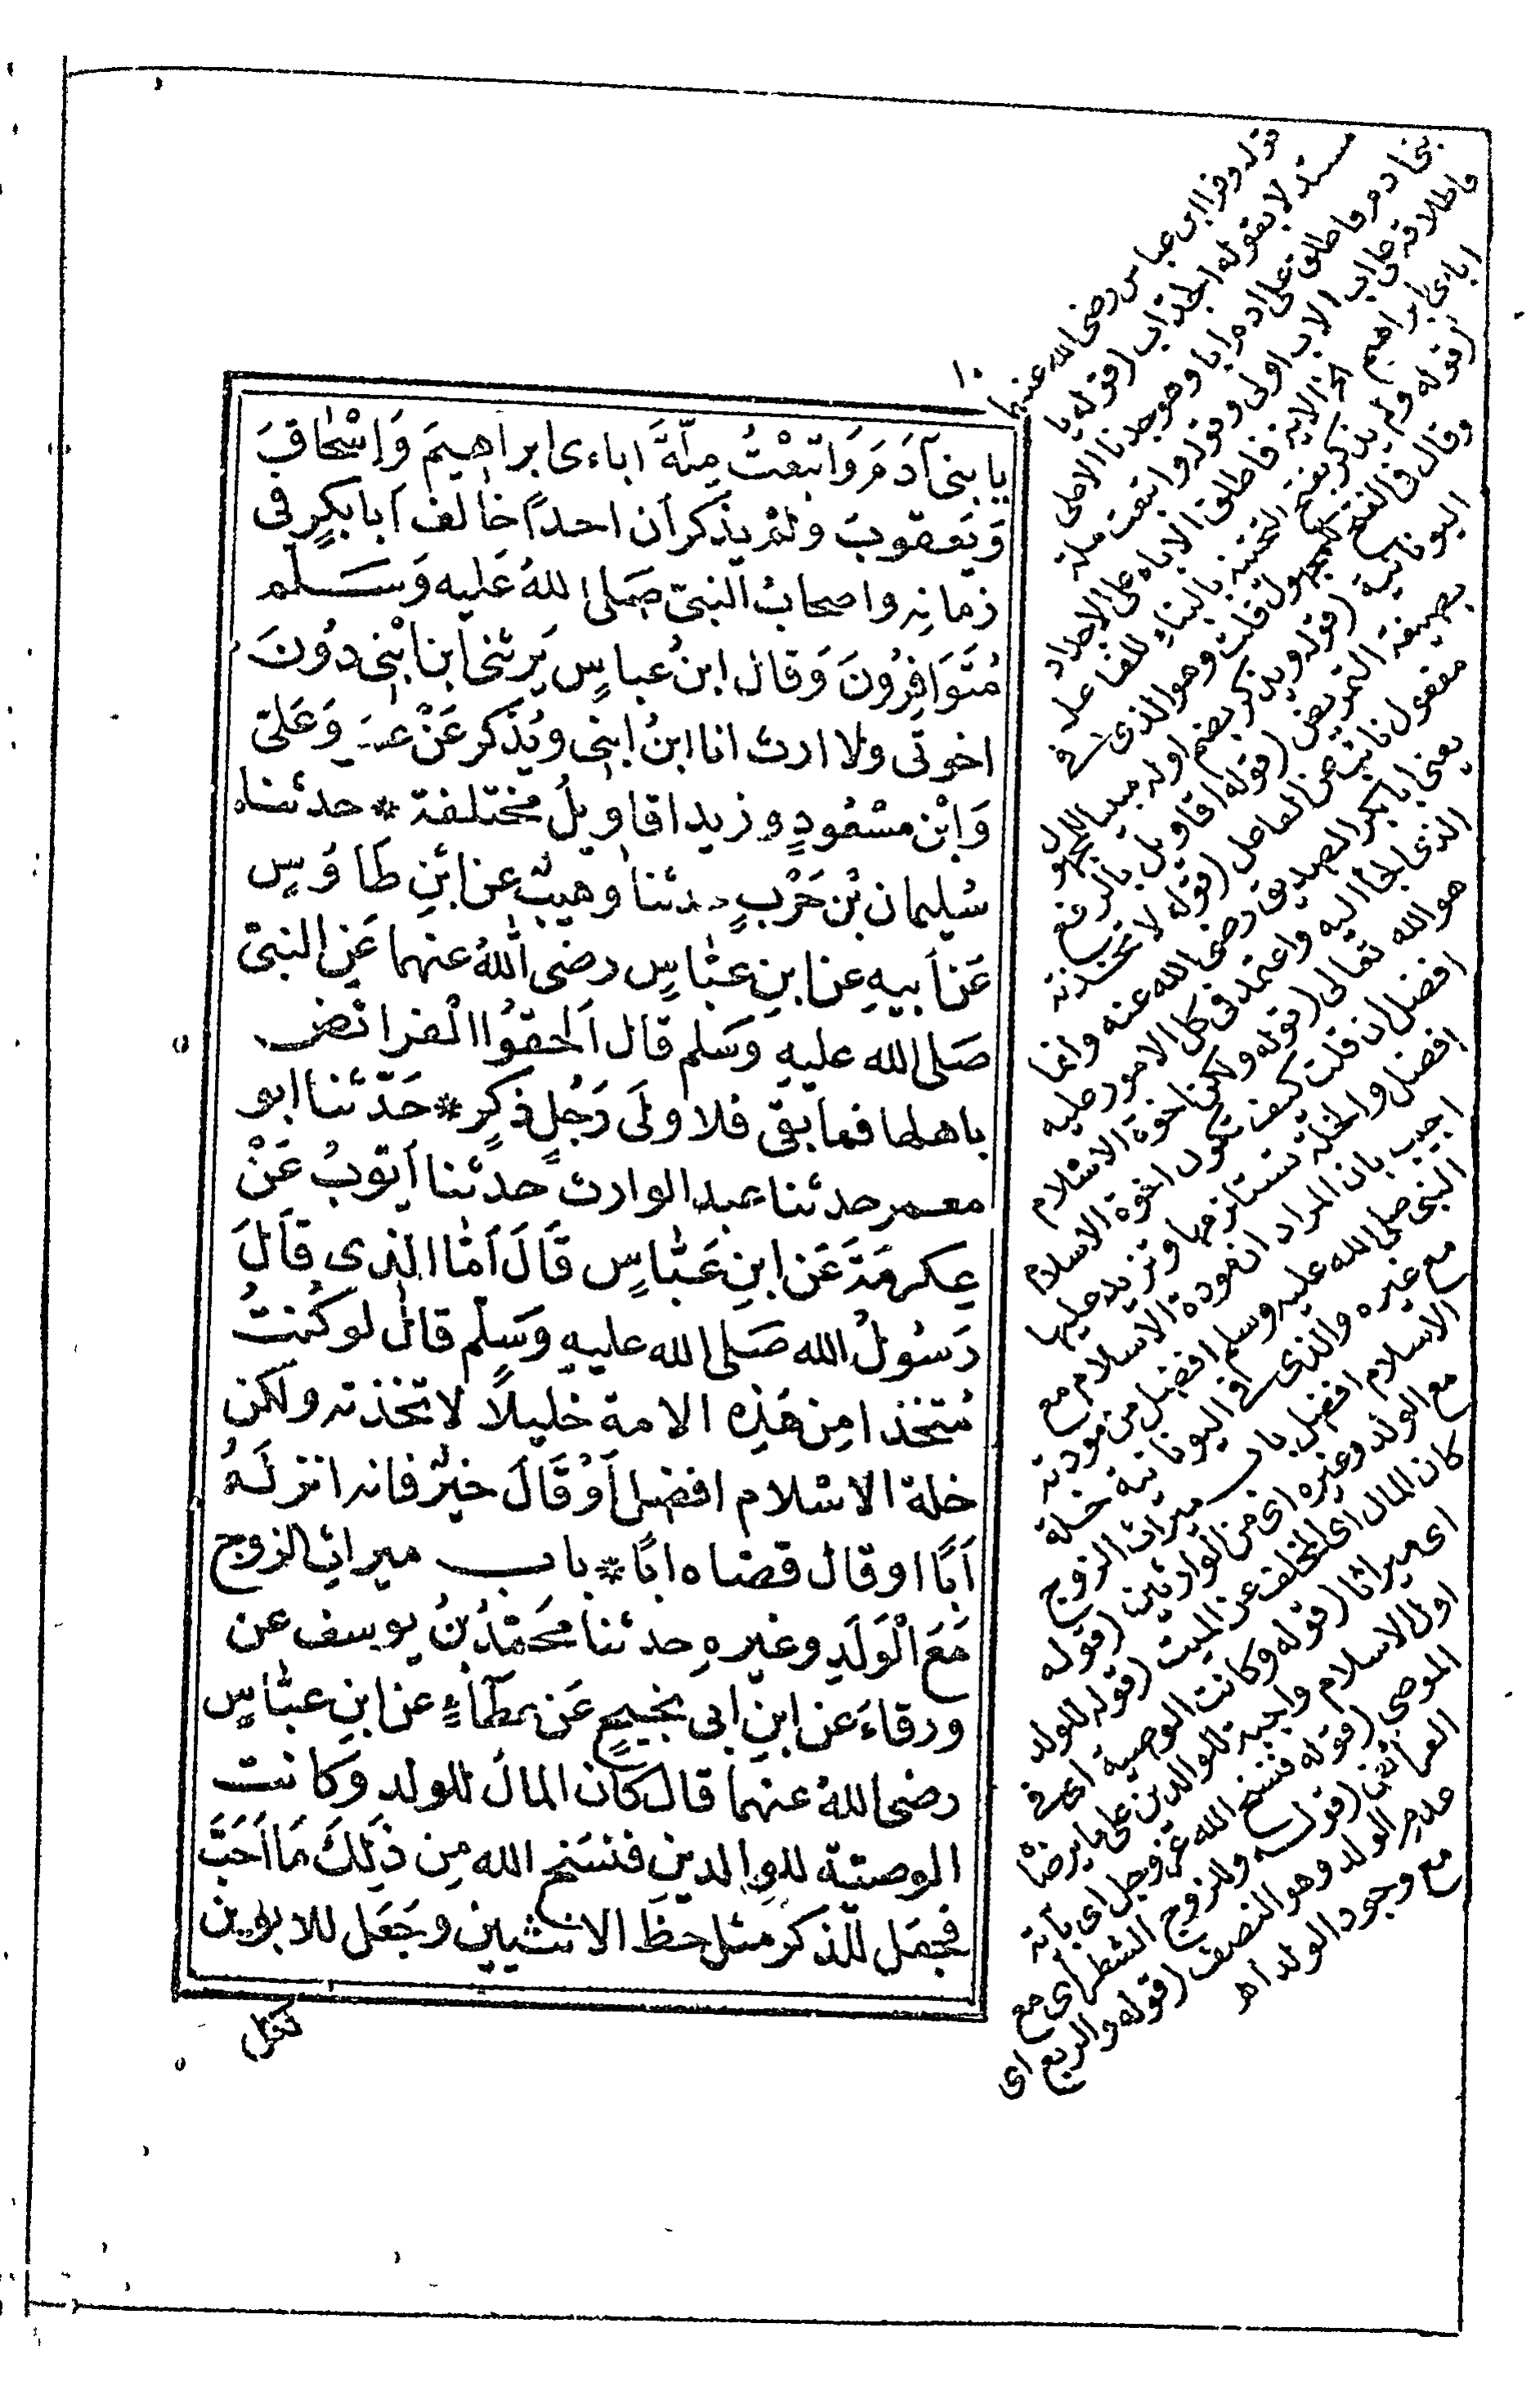 ١٠
يا بنى آدَمَ وَاتبعْتُ مِلّةَ اباءى ابراهيمَ وَاِسْحٰاقَ
وَيَعقوبَ ولمْ يذكر أن احداً خالف أبا بكرٍ فى
زمانِه واصحابُ النبىّ صَلى اللهُ عَليه وَسَلم
مُتَوَافِرُونَ وَقال ابنُ عباسٍ يَرثنى ابن ابْنى دوُنَ
اخوتى ولا ارث انا ابنُ ابنى ويُذكر عَنْ عمر وَعَلىّ
وَابْن مسْعُودٍ وزيد اقاويلُ مختلفة * حدثنا
سُليمان بْن حَرْبٍ حدثنا وهيبٌ عن ابْنِ طَاوُسٍ
عَن أبيهِ عن ابنِ عبّاسٍ رضى اللهُ عنهما عَنِ النبىّ
صَلى الله عليهِ وَسَلم قال اَلحقوُا الْفرائضَ
باهلها فما بقى فلاولَى رَجُلٍ ذكرٍ * حَدّثنا ابو
معمر حدثنا عبد الوارث حدثنا أيّوبُ عَنْ
عِكرمَةَ عَن ابنِ عَبّاسٍ قَالَ اَمّا الذى قاَلَ
رَسُولُ الله صَلى الله عليهِ وَسَلّم قال لو كُنتُ
مُتخذا مِن هٰذِه الامة خليلاً لاتخذته ولكن
خلة الاسْلام افضل أوْ قَالَ خيرٌ فانه انزلَهُ
أبًا او قال قضاه ابًا * باب ميراث الزوج
مَعَ الْوَلَدِ وغيرهِ حدثنا محَمّدُ بْنُ يوسف عن
ورقاءَ عن ابنِ ابى نجيحٍ عَن عطاءٍ عن ابنِ عبّاسٍ
رضى اللهُ عنهما قال كان المالُ للولد وكانت
الوصيّة للوالدين فنسَخ الله مِن ذٰلِكَ مَا اَحَبَّ
فجعَل للذكر مثل حظّ الانثيين وجَعَل للابوين
لكل
قوله وقرا ابن عباس رضى الله عنهما
مستدلا بقوله الجد اب (قوله يا
بنى ادم فاطلق على ادم ابا وهو جدنا الاعلى
فاطلاقه على اب الاب اولى وقوله واتبعت ملة
اباءى ابراهيم الخ الاية فاطلق الاباء على الاجداد
(قوله ولم يذكر بفتح التحتية بالبناء للفاعل
وقال فى الفتح للمجهول قلت وهو الذى فى
اليونانية (قوله ويذكر بضم اوله مبنيا للمجهول
بصيغة التمريض (قوله اقاويل بالرفع
مفعول نائب عن الفاعل (قوله لاتخذته
يعنى ابا بكر الصديق رضى الله عنه وانما
الذى الجأ اليه واعتمد فى كل الامور عليه
هو الله تعالى (قوله ولكن اخوة الاسلام
افضل ان قلت كيف تكون اخوة الاسلام
افضل والخلة تستلزمها وتزيد عليها
اجيب بان المراد ان مودة الاسلام مع
النبى صلى الله عليه وسلم افضل من مودته
مع غيره والذى فى اليونانية خلة
الاسلام افضل باب ميراث الزوج
مع الولد وغيره اى من الوارثين (قوله
كان المال اى المخلف عن الميت (قوله للولد
اى ميراثا (قوله وكانت الوصية اى فى
اول الاسلام واجبة للوالدين على ما يرضاه
الموصى (قوله فنسخ الله عز وجل اى بآية
الفرائض (قوله وللزوج الشطر اى مع
عدم الولد وهو النصف (قوله والربع اى
مع وجود الولد اهـ